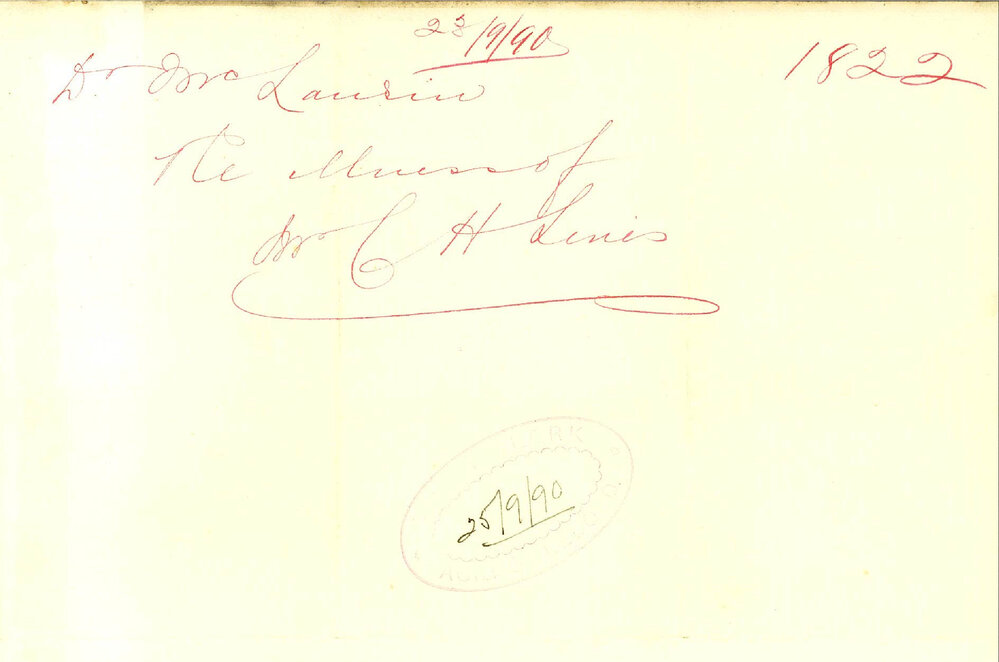 23/9/90
1822
Dr McLaurin
Re illness of
Mr C H Lines
25/9/90